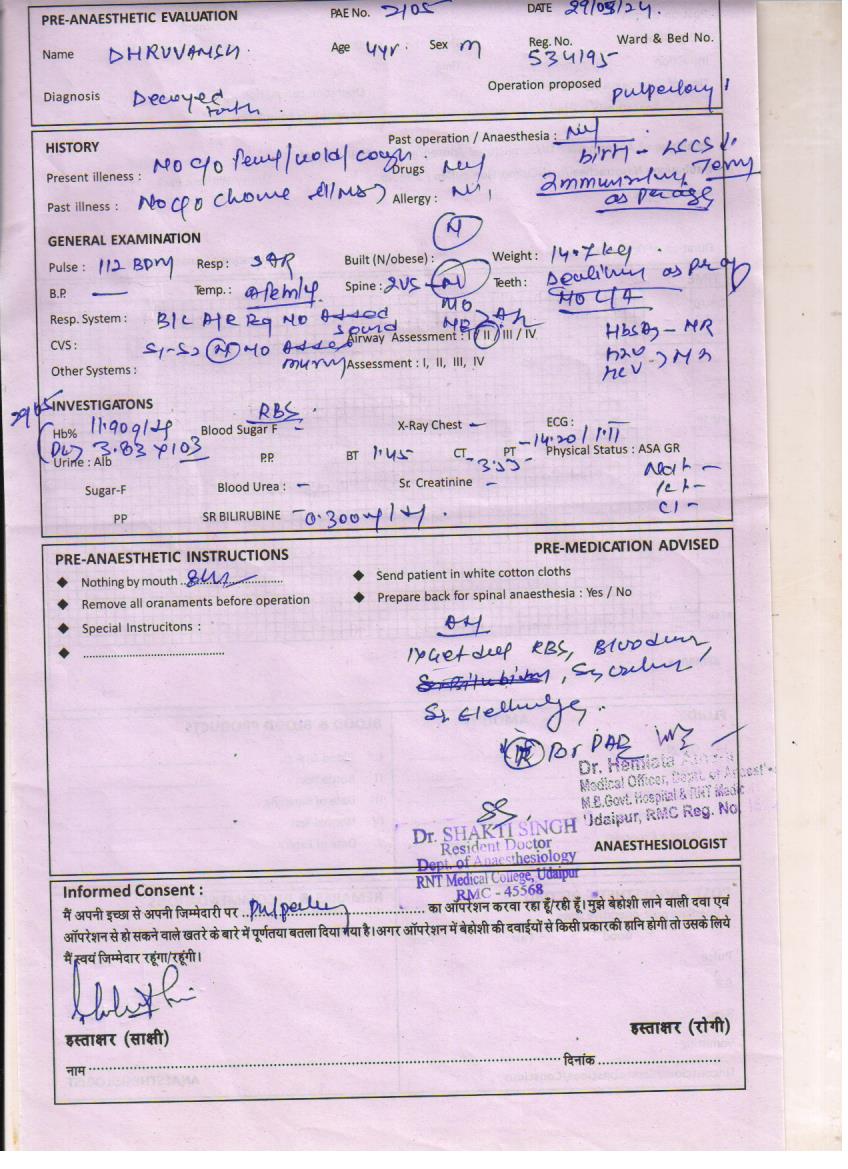 PRE-ANAESTHETIC EVALUATION PAE No. 2105 DATE 29/05/24
Name DHRUVANSH Age 4yr Sex M Reg. No. 534195 Ward & Bed No.
Diagnosis Decayed tooth Operation proposed
HISTORY Past operation / Anaesthesia : Nil
birth - LSCS
Present illeness : No c/o fever/cold/cough Drugs Nil Immunisation
Past illness : No c/o chronic illness Allergy : Nil as per age
GENERAL EXAMINATION N
Pulse : 112 BPM Resp : Built (N/obese) : Weight : 14.7 kg
B.P. — Temp. : Afebrile Spine : Teeth : Dentition as per age
No L/A
Resp. System : B/L A/E No Added sound
CVS : S1-S2 N No Airway Assessment : I / II / III / IV HbsAg - NR
Other Systems : Assessment : I, II, III, IV HCV
INVESTIGATONS RBS
29/05
Hb% 11.90 g/dl Blood Sugar F - X-Ray Chest - ECG :
3.83 x 103
Urine : Alb P.P. BT 1.45 CT PT - 14.20 / 1.11 Physical Status : ASA GR
Sugar-F Blood Urea : - Sr. Creatinine - Na+ -
K+ -
Cl -
PP SR BILIRUBINE - 0.300 mg/dl.
PRE-ANAESTHETIC INSTRUCTIONS PRE-MEDICATION ADVISED
◆ Nothing by mouth ........................ ◆ Send patient in white cotton cloths
◆ Remove all oranaments before operation ◆ Prepare back for spinal anaesthesia : Yes / No
◆ Special Instrucitons :
◆ ........................................
RBS, Blood urea,
Sr. Electrolytes.
for PAE
Dr. Hemlata
Medical Officer, Deptt. of
M.B.Govt. Hospital & RNT Medic
Udaipur, RMC Reg. No.
Dr. SHAKTI SINGH
Resident Doctor
ANAESTHESIOLOGIST
Dept. of Anaesthesiology
RNT Medical College, Udaipur
RMC - 45568
Informed Consent :
मैं अपनी इच्छा से अपनी जिम्मेदारी पर ........................ का ऑपरेशन करवा रहा हूँ/रही हूँ। मुझे बेहोशी लाने वाली दवा एवं
ऑपरेशन से हो सकने वाले खतरे के बारे में पूर्णतया बतला दिया गया है। अगर ऑपरेशन में बेहोशी की दवाईयों से किसी प्रकारकी हानि होगी तो उसके लिये
मैं स्वयं जिम्मेदार रहूंगा/रहूंगी।
हस्ताक्षर (साक्षी) हस्ताक्षर (रोगी)
नाम ........................ दिनांक ........................